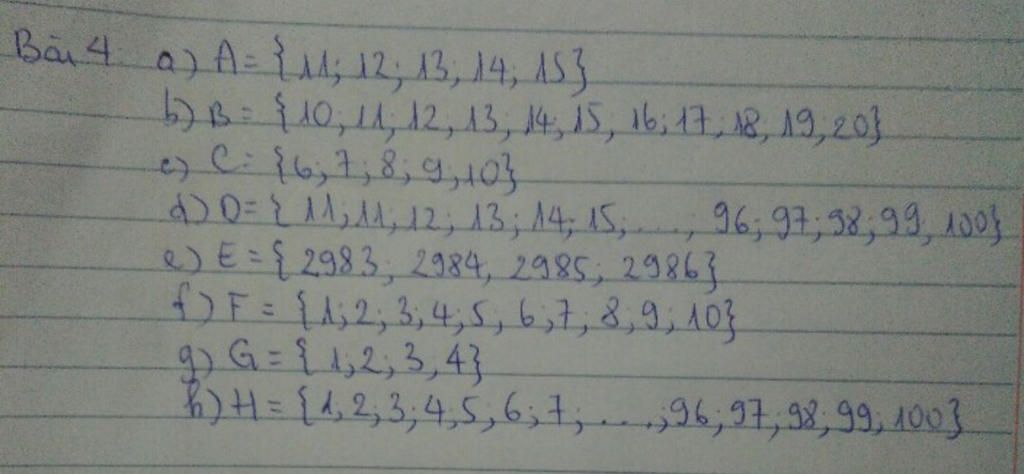 Bài 4 a) A = {11; 12; 13; 14; 15}
b) B = {10; 11; 12; 13; 14; 15, 16; 17; 18, 19, 20}
c) C = {6; 7; 8; 9; 10}
d) D = {11; 11; 12; 13; 14; 15; ....; 96; 97; 98; 99, 100}
e) E = {2983; 2984, 2985; 2986}
f) F = {1; 2; 3; 4; 5; 6; 7; 8; 9; 10}
g) G = {1; 2; 3, 4}
h) H = {1, 2; 3; 4; 5; 6; 7; ....; 96; 97; 98; 99; 100}